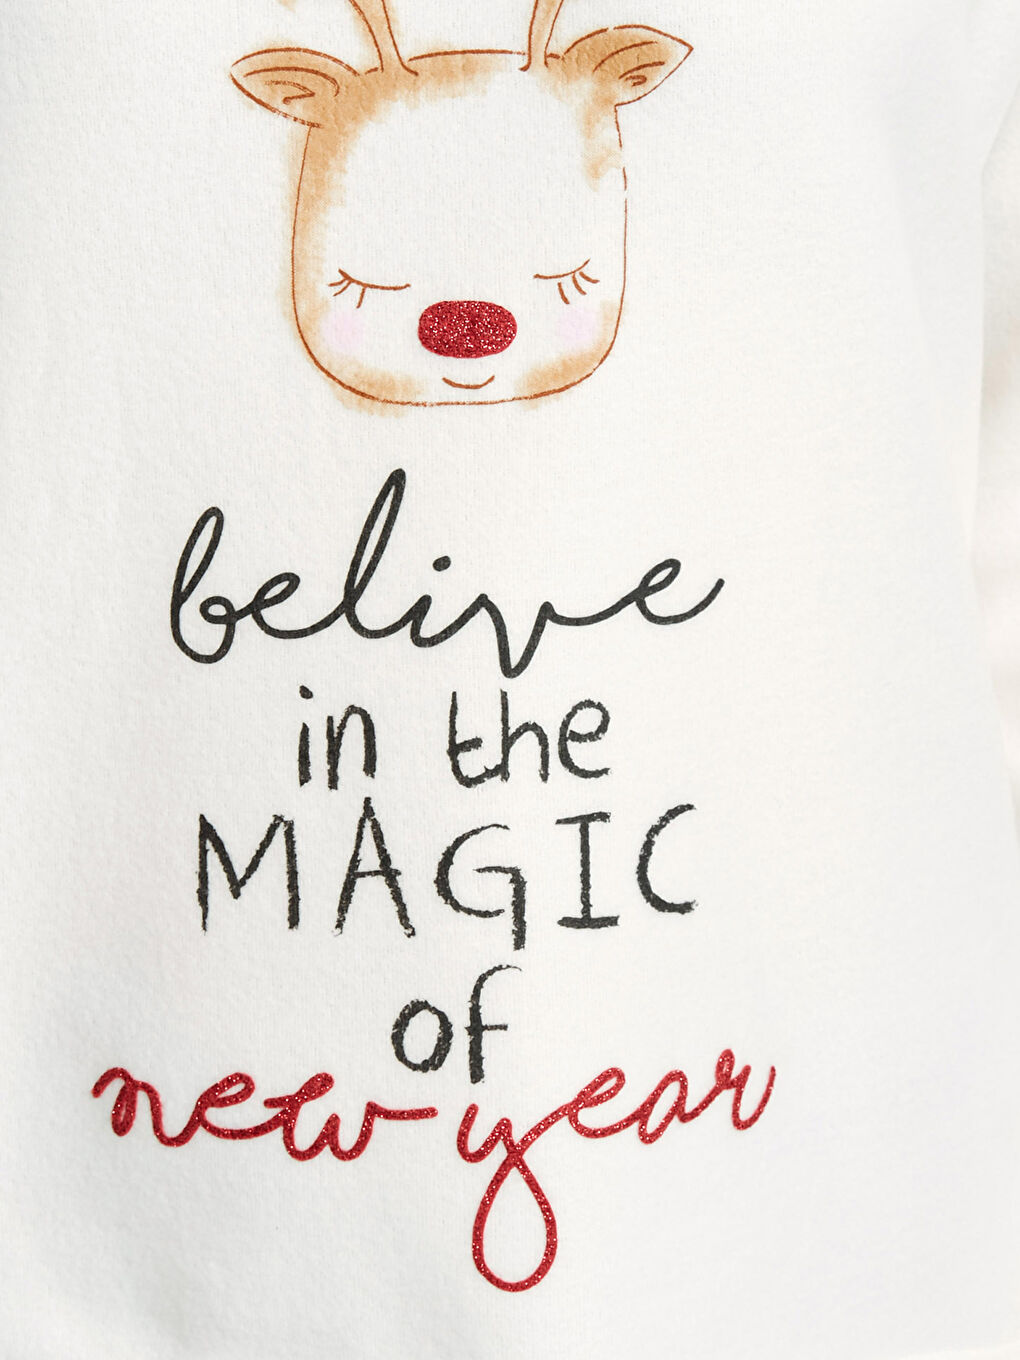 belive
in the
MAGIC
of
new year